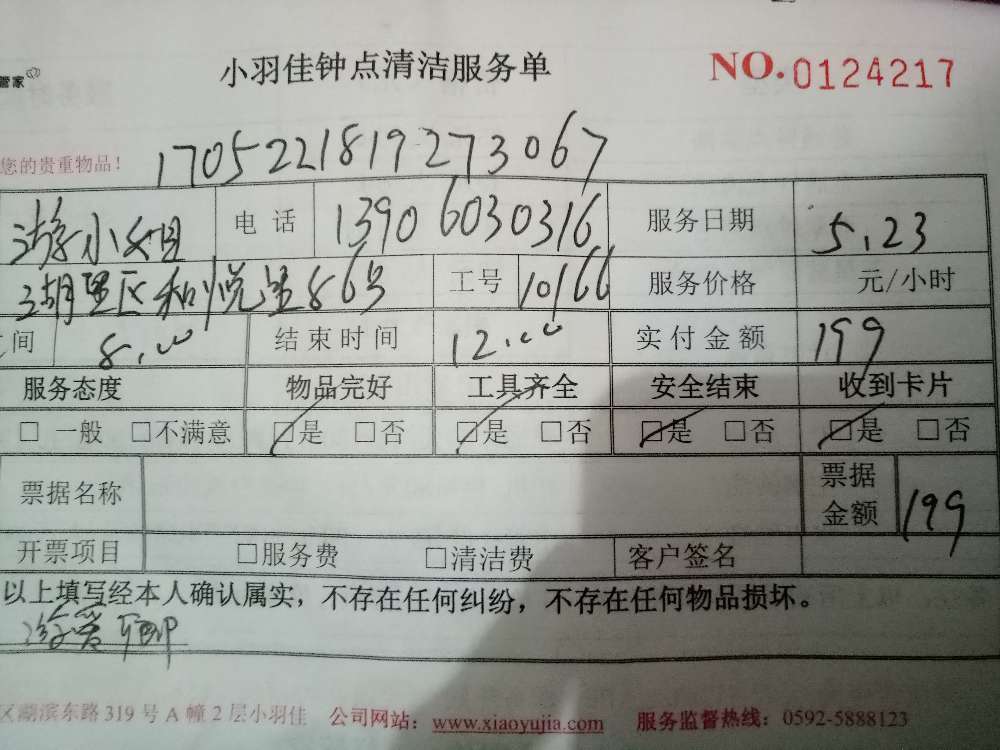 管家 小羽佳钟点清洁服务单 NO.0124217
您的贵重物品! 1705221819273067
游小姐 电话 13906030316 服务日期 5.23
湖里区和悦里86号 工号 10166 服务价格 元/小时
间 8:00 结束时间 12:00 实付金额 199
服务态度 物品完好 工具齐全 安全结束 收到卡片
□ 一般 □不满意 □是 □否 □是 □否 □是 □否 □是 □否
票据名称 票据金额 199
开票项目 □服务费 □清洁费 客户签名
以上填写经本人确认属实，不存在任何纠纷，不存在任何物品损坏。
游爱
区湖滨东路319号A幢2层小羽佳 公司网站：www.xiaoyujia.com 服务监督热线：0592-5888123